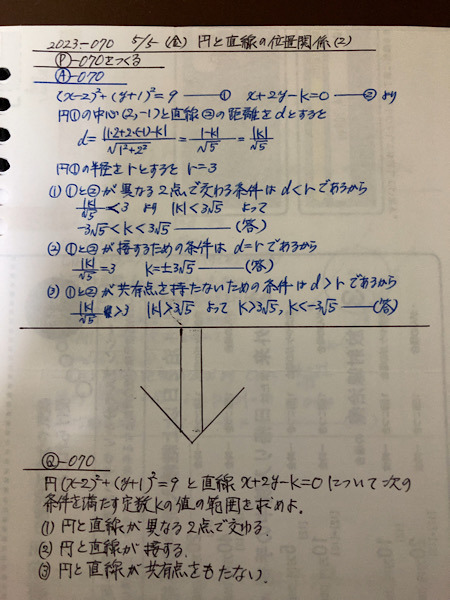 2023-070 5/5(金) 円と直線の位置関係(2)
Ⓟ-070をつくる
Ⓐ-070
(x-2)²+(y+1)²=9 ——① x+2y-k=0 ——② より
円①の中心(2,-1)と直線②の距離をdとすると
d=|1·2+2·(-1)-k|/√(1²+2²)=|-k|/√5=|k|/√5
円①の半径をrとすると r=3
(1) ①と②が異なる2点で交わる条件は d<rであるから
|k|/√5<3 より |k|<3√5 よって
-3√5<k<3√5 ——(答)
(2) ①と②が接するための条件は d=rであるから
|k|/√5=3 k=±3√5 ——(答)
(3) ①と②が共有点を持たないための条件は d>rであるから
|k|/√5>3 |k|>3√5 よって k>3√5, k<-3√5 ——(答)
Ⓠ-070
円(x-2)²+(y+1)²=9 と直線 x+2y-k=0 について次の
条件を満たす定数kの値の範囲を求めよ.
(1) 円と直線が異なる2点で交わる.
(2) 円と直線が接する.
(3) 円と直線が共有点をもたない.